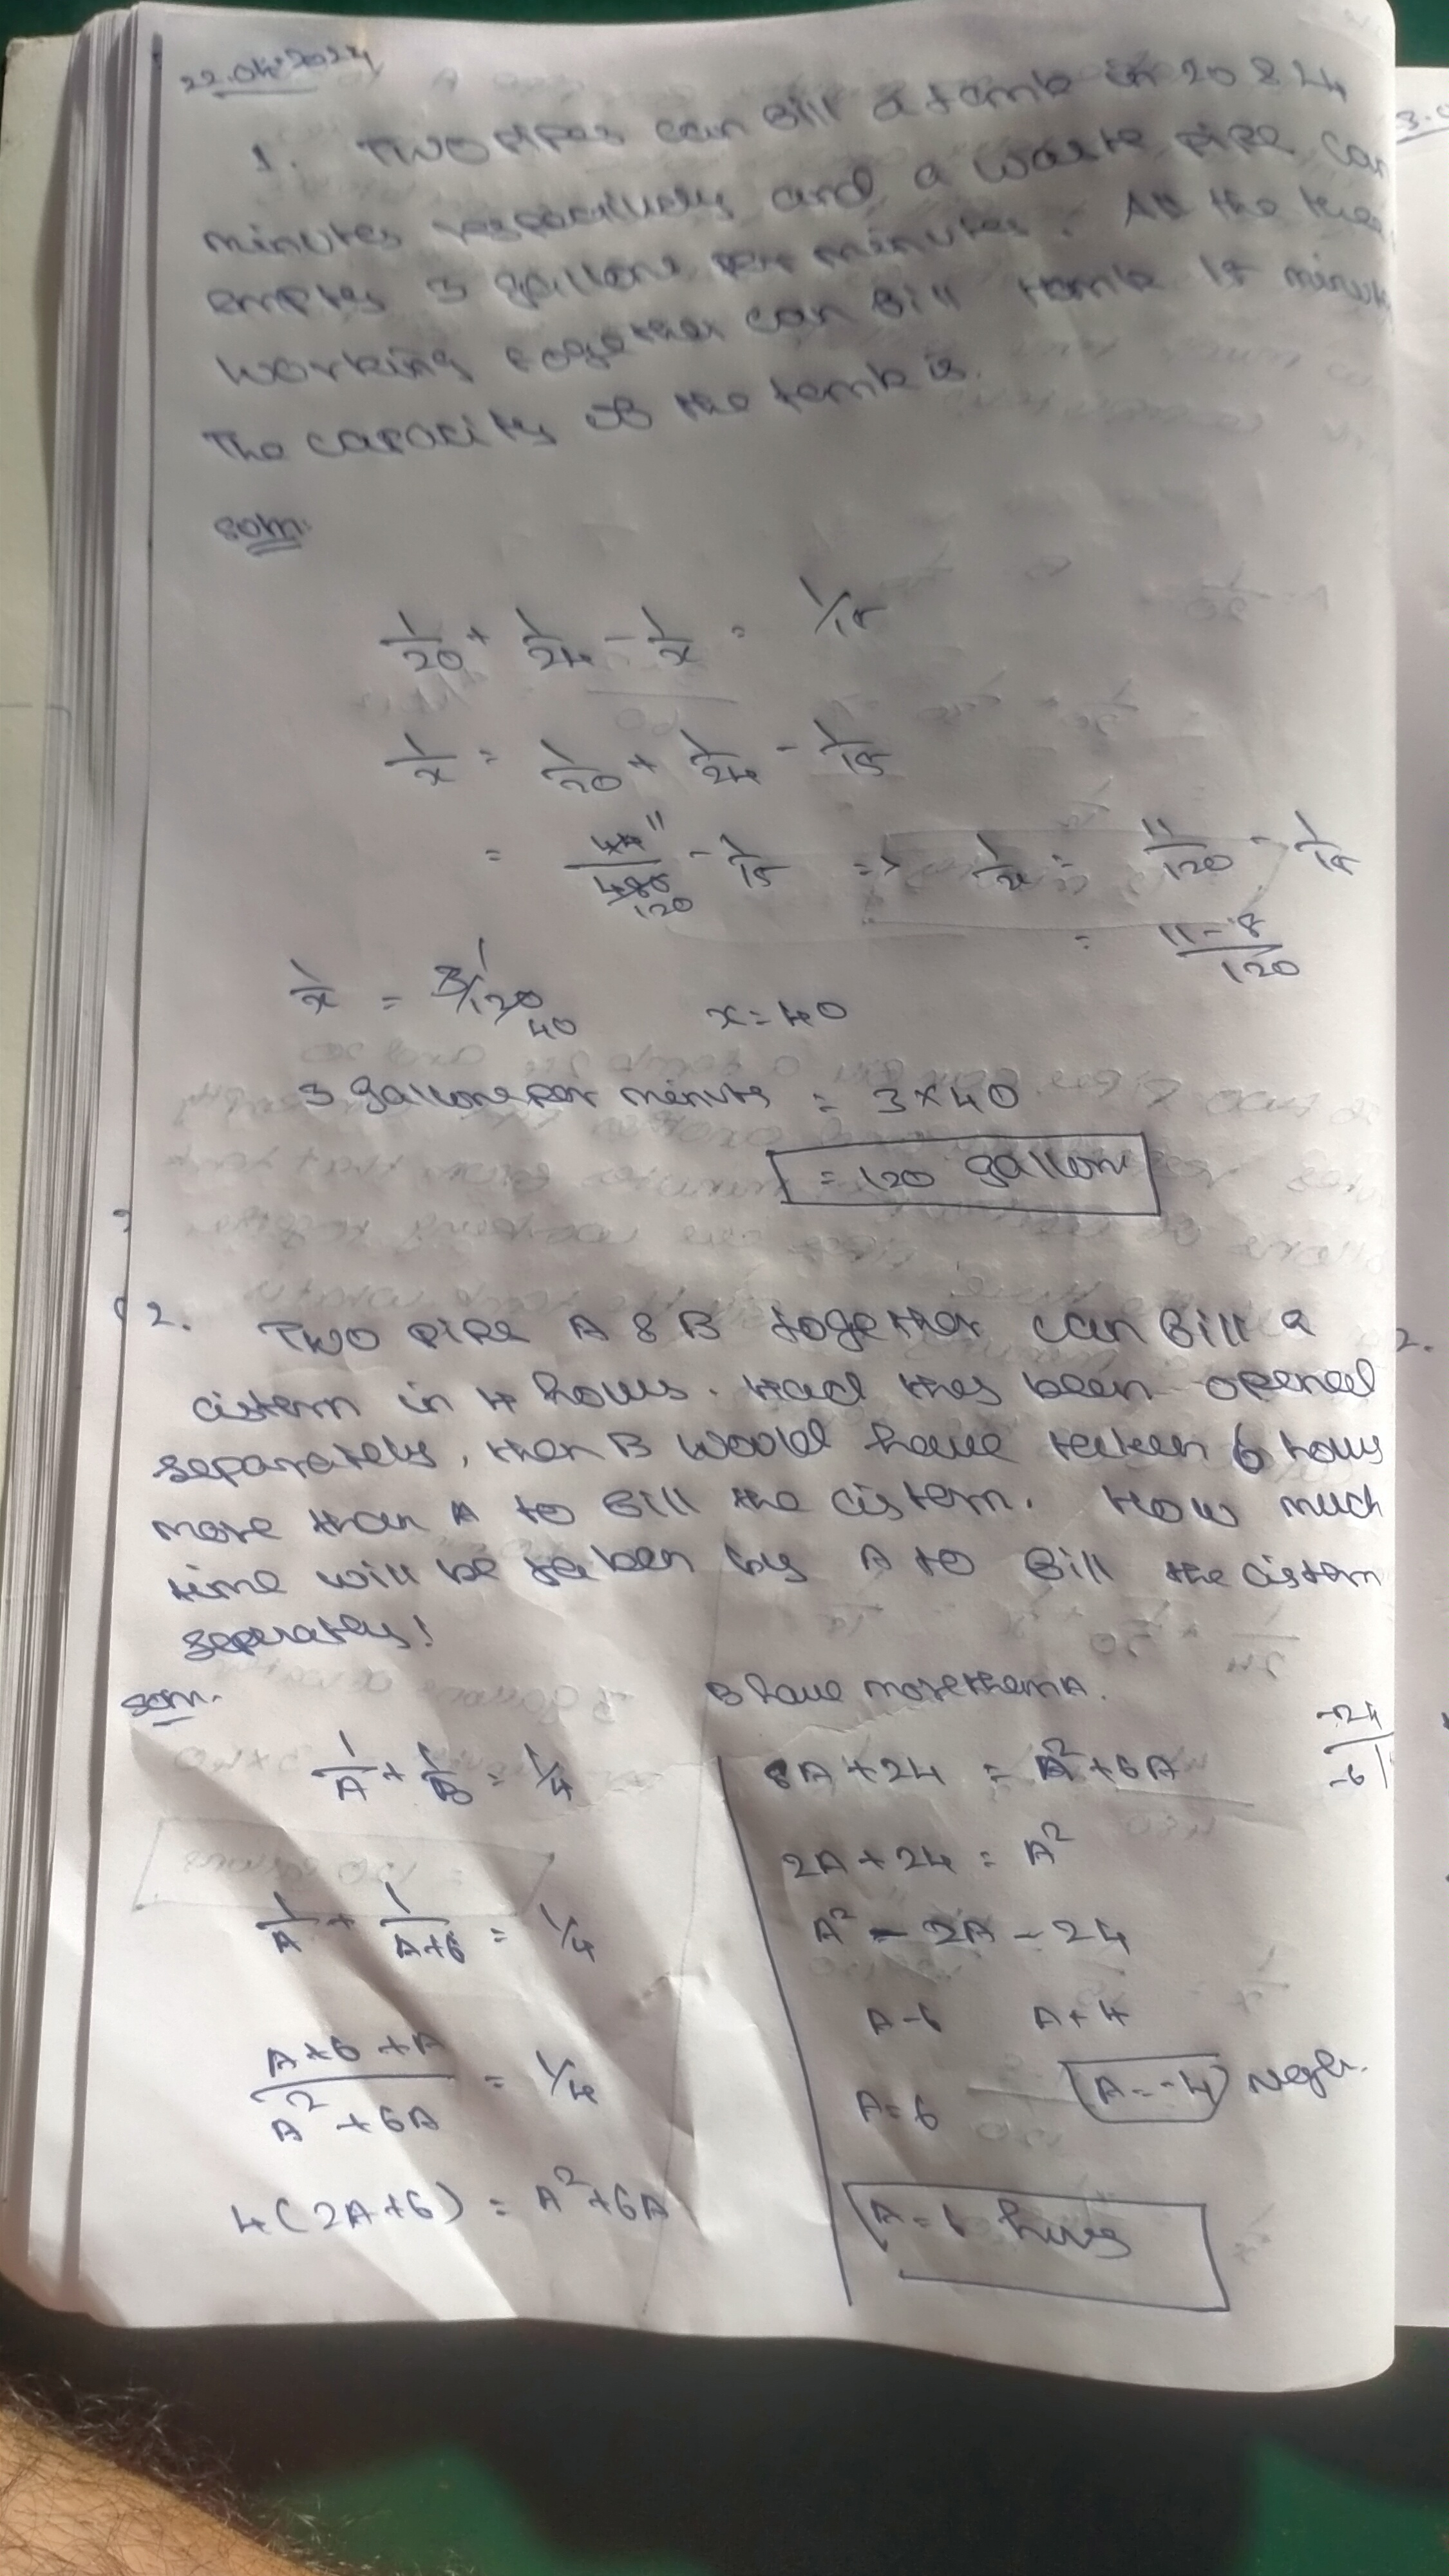 22.04.2024
1. Two pipes can fill a tank in 20 & 24
minutes respectively and a waste pipe can
empty 3 gallons per minutes. All the three
working together can fill tank 15 minutes
The capacity of the tank is.
Soln:
1/20 + 1/24 - 1/x = 1/15
1/x = 1/20 + 1/24 - 1/15
= 44 11 / 480 120 - 1/15 => 1/x = 11/120 - 1/15
= 11-8 / 120
1/x = 3 1 / 120 40 x = 40
3 gallons per minute = 3 × 40
= 120 gallons
2. Two pipe A & B together can fill a
cistern in 4 hours. Had they been opened
separately, then B would have taken 6 hours
more than A to fill the cistern. How much
time will be taken by A to fill the cistern
seperately!
Soln.
1/A + 1/B = 1/4
1/A + 1/A+6 = 1/4
A+6+A / A²+6A = 1/4
4(2A+6) = A²+6A
B have more than A.
8A+24 = A²+6A
2A+24 = A²
A² - 2A - 24
A-6 A+4
A=6 A=-4 Negl.
A=6 hours
-24
-6